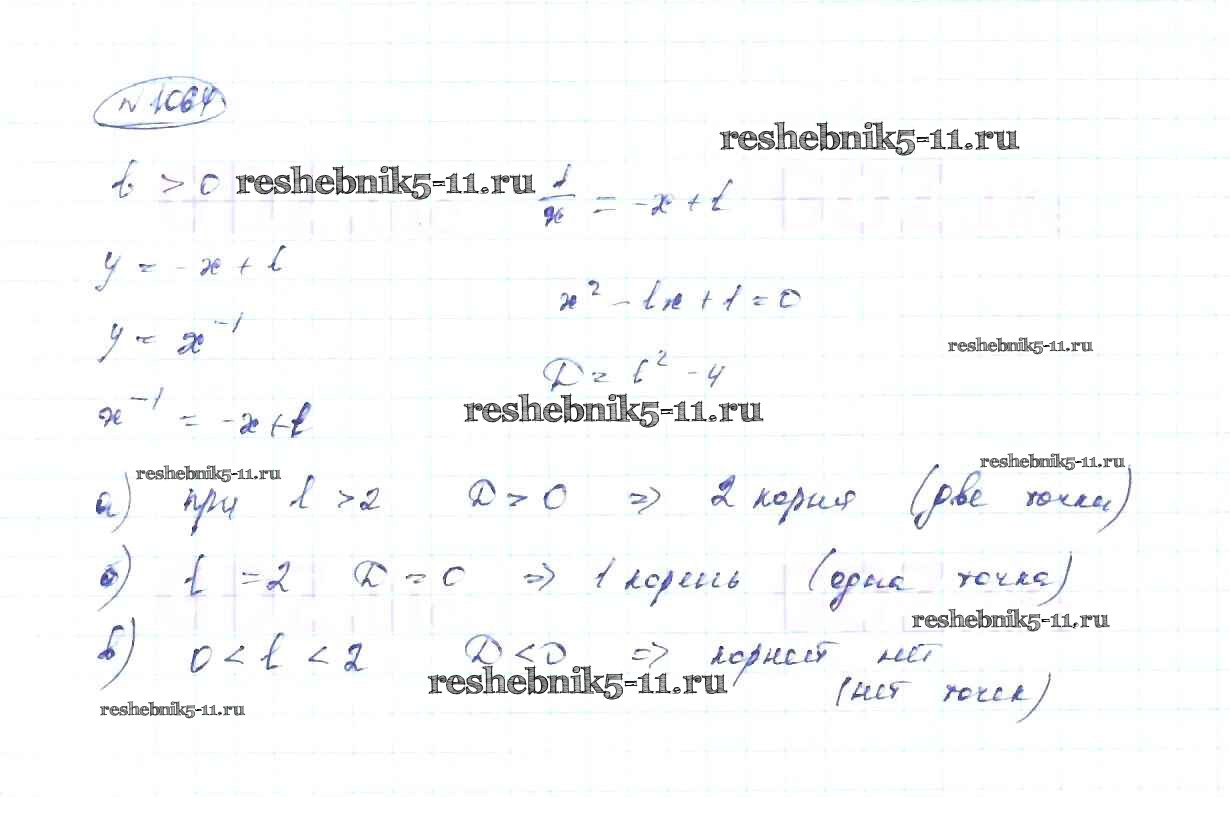 № 1064
reshebnik5-11.ru
b > 0 reshebnik5-11.ru 1/x = -x + b
y = -x + b
x² - bx + 1 = 0
y = x⁻¹
reshebnik5-11.ru
D = b² - 4
x⁻¹ = -x + b
reshebnik5-11.ru
reshebnik5-11.ru
reshebnik5-11.ru
а) при b > 2 D > 0 => 2 корня (две точки)
б) b = 2 D = 0 => 1 корень (одна точка)
reshebnik5-11.ru
в) 0 < b < 2 D < 0 => корней нет
reshebnik5-11.ru
(нет точек)
reshebnik5-11.ru